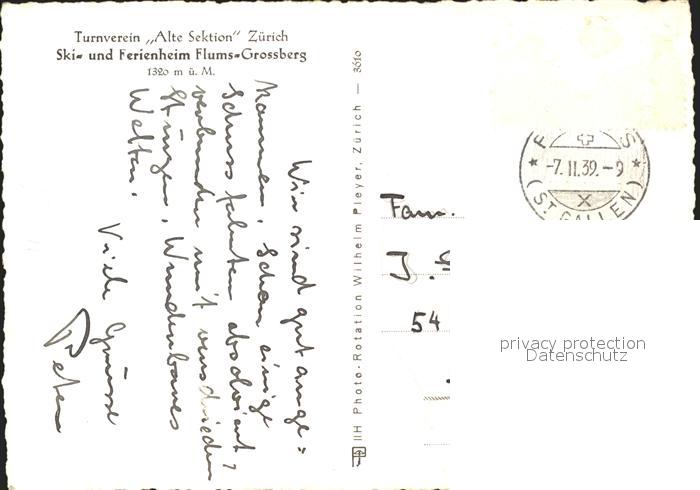 Turnverein „Alte Sektion" Zürich
Ski- und Ferienheim Flums-Grossberg
1320 m ü. M.
Wir sind gut ange-
kommen. Schon einige
Schuss fahrten absolviert,
verbunden mit verschieden
Stürzen. Wunderbares
Wetter.
Viele Grüsse
Peter
IIH Photo-Rotation Wilhelm Pleyer, Zürich — 3610
-7.II.39.-9
(ST. GALLEN)
X
Fam.
J.
54
privacy protection
Datenschutz